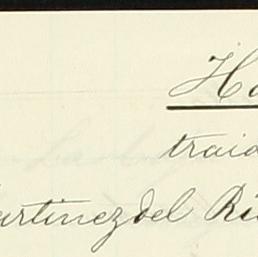 Ha
traid
artinez del Ri